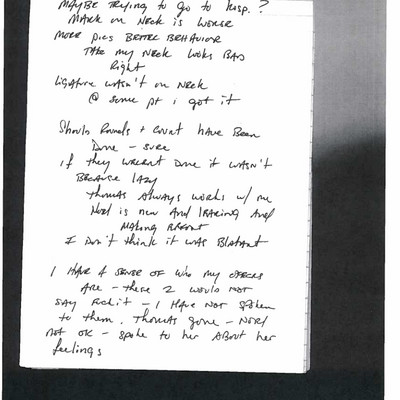 MAYBE TRYING TO GO TO HOSP. ?
MARK ON NECK IS WORSE
MORE PICS BETTER BEHAVIOR
TAKE MY NECK LOOKS BAD
Right
Ligature WASN'T ON NECK
@ some pt i got it
Should Rounds + Count HAVE BEEN
Done - SURE
if they WERENT Done it WASN'T
BECAUSE LAZY
THOMAS ALWAYS works w/ me
Noel is new And LEARNING And
MAKING
I DON'T think it WAS BLATANT
I HAVE A SENSE OF WHO my
ARE - these 2 WOULD NOT
SAY it - I HAVE NOT SPOKEN
to them. THOMAS gone - NOEL
not OK - spoke to her ABOUT her
feelings